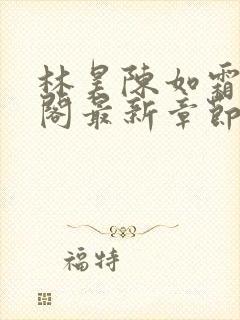 林昊陳如霜
閣最新章節
福特